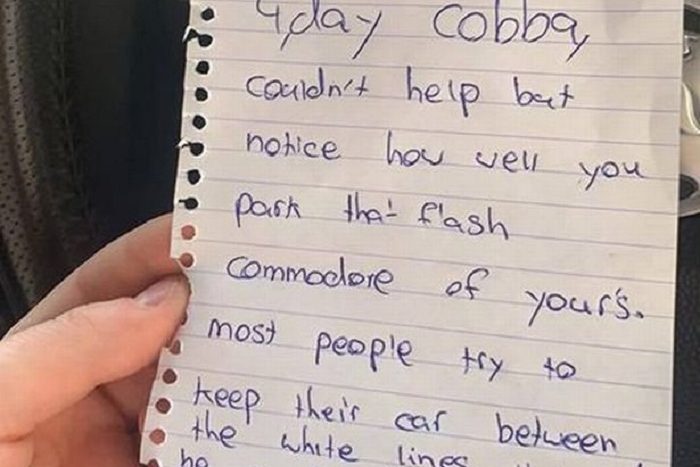 G,day Cobba,
couldn't help but
notice how well you
park that flash
commodore of your's.
most people try to
keep their car between
the white lines